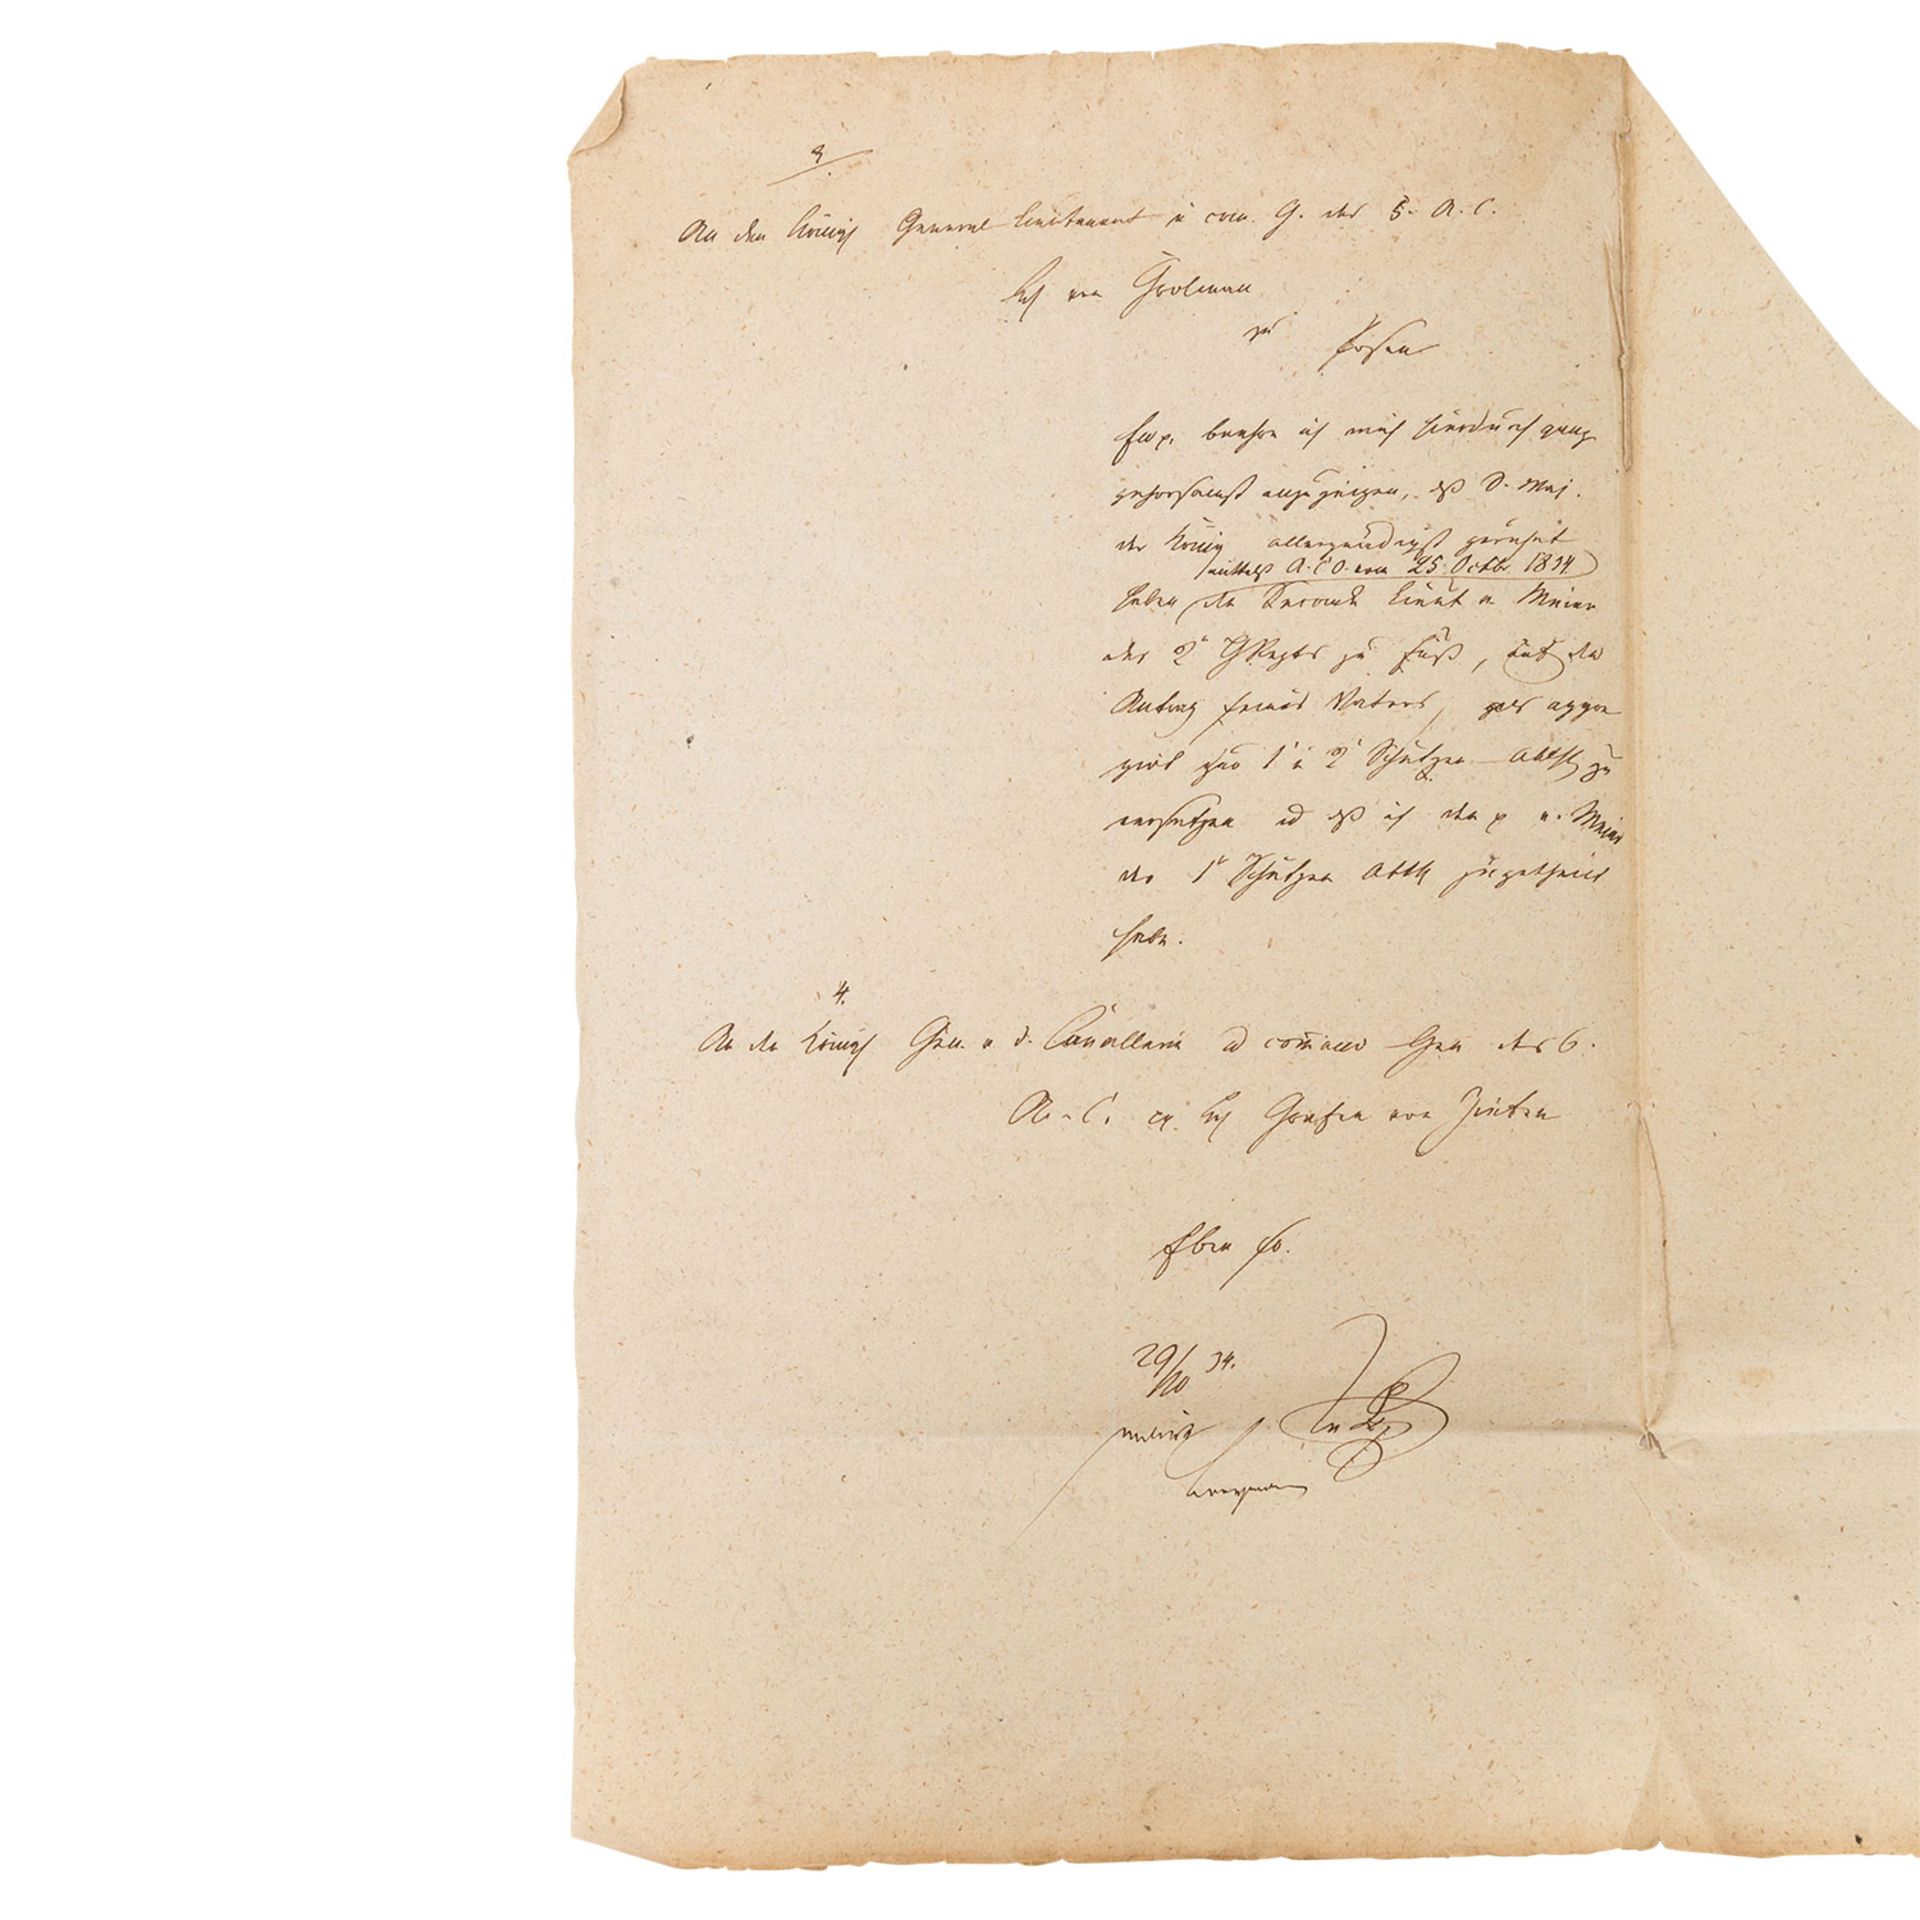 3.
An den Königl General Lieutenant u com. G. des 5. A. C.
H von Grolman
zu Posen
Ew p. beehre ich mich hierdurch ganz
gehorsamst anzuzeigen, dß S. Maj.
der König allergnädigst geruht
mittelst A. C. O. vom 25 Octbr 1834
haben den Seconde Lieut v. Meier
des 2n GRegts zu Fuß, auf den
Antrag seines Vaters, als aggre
girt zur 1n u 2n Schützen Abthl zu
versetzen ud dß ich den p v. Meier
der 1n Schützen Abth zugetheilt
habe.
4.
An den Königl Gen. v d. Cavallerie ud comman Gen des 6.
A. C. H Grafen von Zieten
Eben so.
29/10 34.